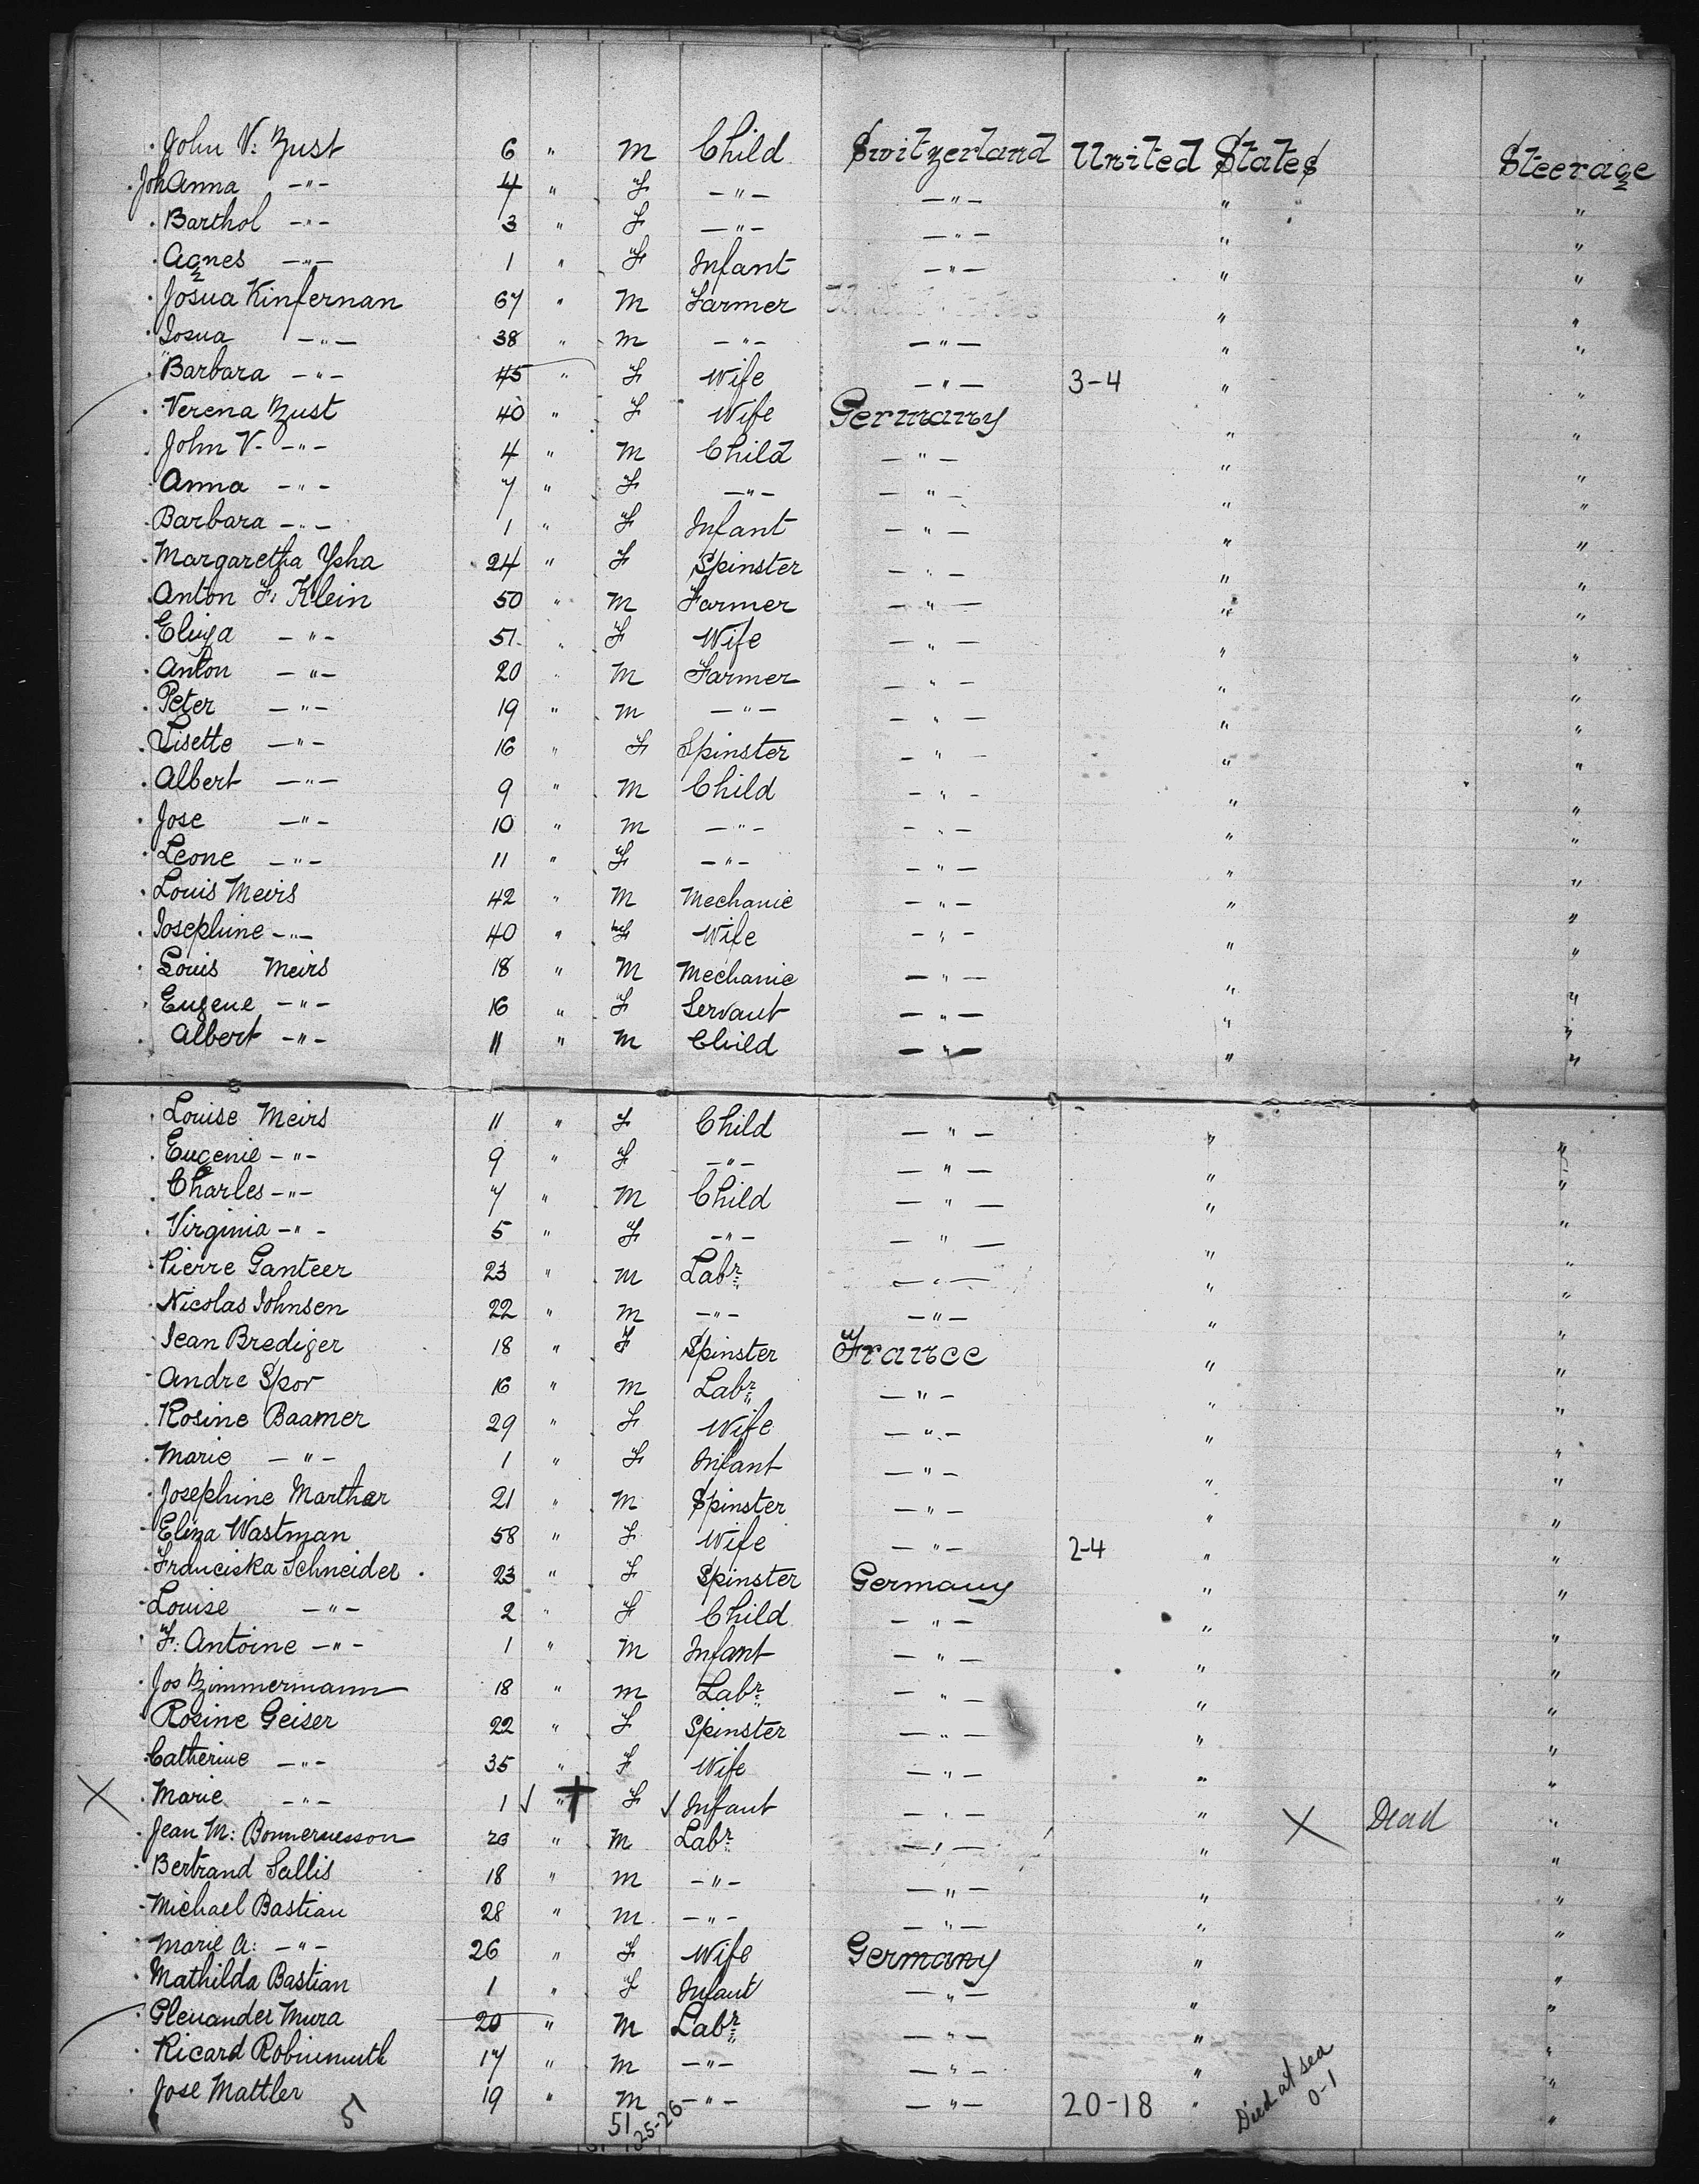 John V: Zust 6 " M Child Switzerland United States Steerage
JohAnna -"- 4 " F -"- -"- " "
Barthol -"- 3 " F -"- -"- " "
Agnes -"- 1 " F Infant -"- " "
Josua Kinfernan 67 " M Farmer " "
Josua -"- 38 " M -"- -"- " "
Barbara -"- 45 " F Wife -"- 3-4 " "
Verena Zust 40 " F Wife Germany " "
John V. -"- 4 " M Child -"- " "
Anna -"- 7 " F -"- -"- " "
Barbara -"- 1 " F Infant -"- " "
Margaretha Ysha 24 " F Spinster -"- " "
Anton F. Klein 50 " M Farmer -"- " "
Eliza -"- 51 " F Wife -"- " "
Anton -"- 20 " M Farmer -"- " "
Peter -"- 19 " M -"- -"- " "
Lisette -"- 16 " F Spinster -"- " "
Albert -"- 9 " M Child -"- " "
Jose -"- 10 " M -"- -"- " "
Leone -"- 11 " F -"- -"- " "
Louis Meirs 42 " M Mechanic -"- " "
Josephine -"- 40 " F Wife -"- " "
Louis Meirs 18 " M Mechanic -"- " "
Eugene -"- 16 " F Servant -"- " "
Albert -"- 11 " M Child -"- " "
Louise Meirs 11 " F Child -"- " "
Eugenie -"- 9 " F -"- -"- " "
Charles -"- 7 " M Child -"- " "
Virginia -"- 5 " F -"- -"- " "
Pierre Ganteer 23 " M Labr -"- " "
Nicolas Johnsen 22 " M -"- -"- " "
Jean Brediger 18 " F Spinster France " "
Andre Spor 16 " M Labr -"- " "
Rosine Baamer 29 " F Wife -"- " "
Marie -"- 1 " F Infant -"- " "
Josephine Marthar 21 " M Spinster -"- " "
Eliza Wastman 58 " F Wife -"- 2-4 " "
Franciska Schneider 23 " F Spinster Germany " "
Louise -"- 2 " F Child -"- " "
F: Antoine -"- 1 " M Infant -"- " "
Jos Zimmermann 18 " M Labr -"- " "
Rosine Geiser 22 " F Spinster -"- " "
Catherine -"- 35 " F Wife -"- " "
X Marie -"- 1 √ " † F √ Infant -"- " X Dead "
Jean M: " M Labr -"- " "
Bertrand Sallis 18 " M -"- -"- " "
Michael Bastian 28 " M -"- -"- " "
Marie A: -"- 26 " F Wife Germany " "
Mathilda Bastian 1 " F Infant -"- " "
Mura 20 " M Labr -"- " "
Ricard 17 " M -"- -"- " "
Jose Mattler 19 " M -"- -"- 20-18 " Died at sea 0-1 "
5 51 25-26